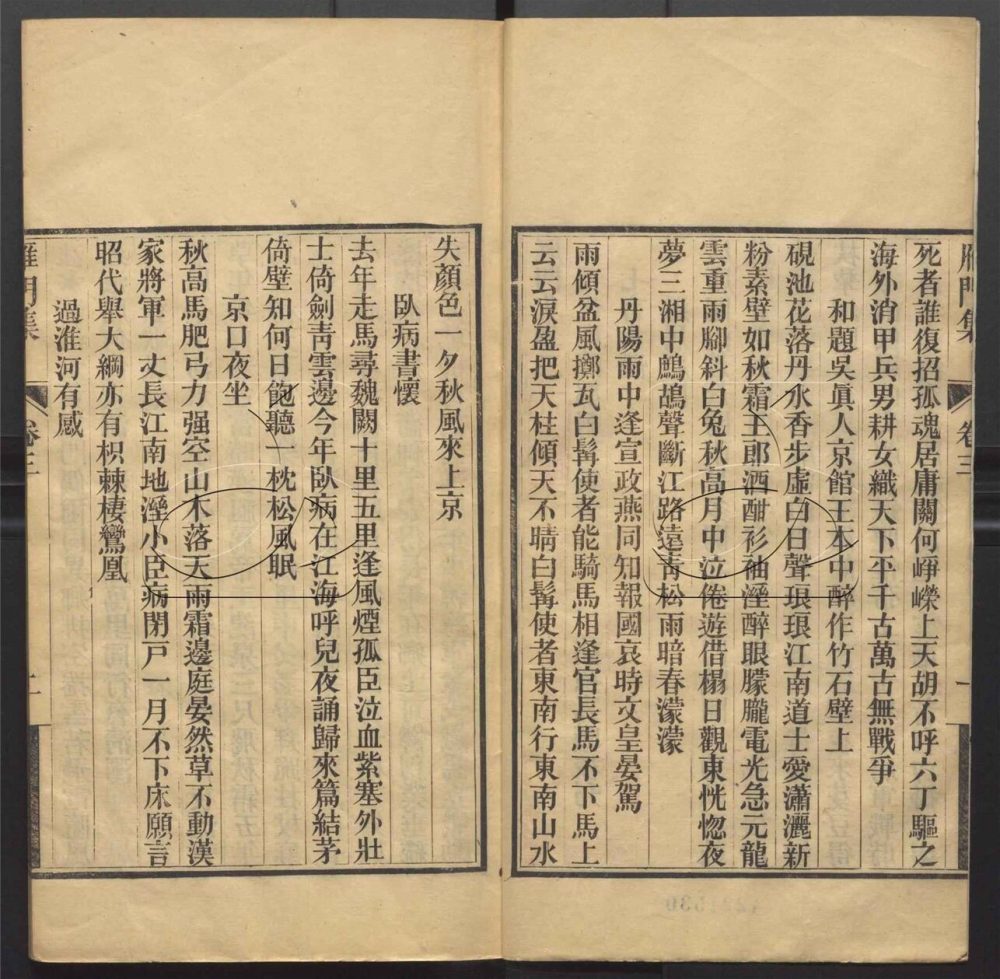 鴈門集 卷三 一
死者誰復招孤魂居庸關何崢嶸上天胡不呼六丁驅之
海外消甲兵男耕女織天下平千古萬古無戰爭
和題吳眞人京館王本中醉作竹石壁上
硯池花落丹水香步虛白日聲琅琅江南道士愛瀟灑新
粉素壁如秋霜王郎酒酣衫袖溼醉眼朦朧電光急元龍
雲重雨腳斜白兔秋高月中泣倦遊借榻日觀東恍惚夜
夢三湘中鷓鴣聲斷江路遠靑松雨暗春濛濛
丹陽雨中逢宣政燕同知報國哀時文皇晏駕
雨傾盆風擲瓦白髯使者能騎馬相逢官長馬不下馬上
云云淚盈把天柱傾天不晴白髯使者東南行東南山水
失顏色一夕秋風來上京
臥病書懷
去年走馬尋魏闕十里五里逢風煙孤臣泣血紫塞外壯
士倚劍靑雲邊今年臥病在江海呼兒夜誦歸來篇結茅
倚壁知何日飽聽一枕松風眠
京口夜坐
秋高馬肥弓力强空山木落天雨霜邊庭晏然草不動漢
家將軍一丈長江南地溼小臣病閉戸一月不下床願言
昭代舉大綱亦有枳棘棲鸞凰
過淮河有感
雁門集 卷三 二